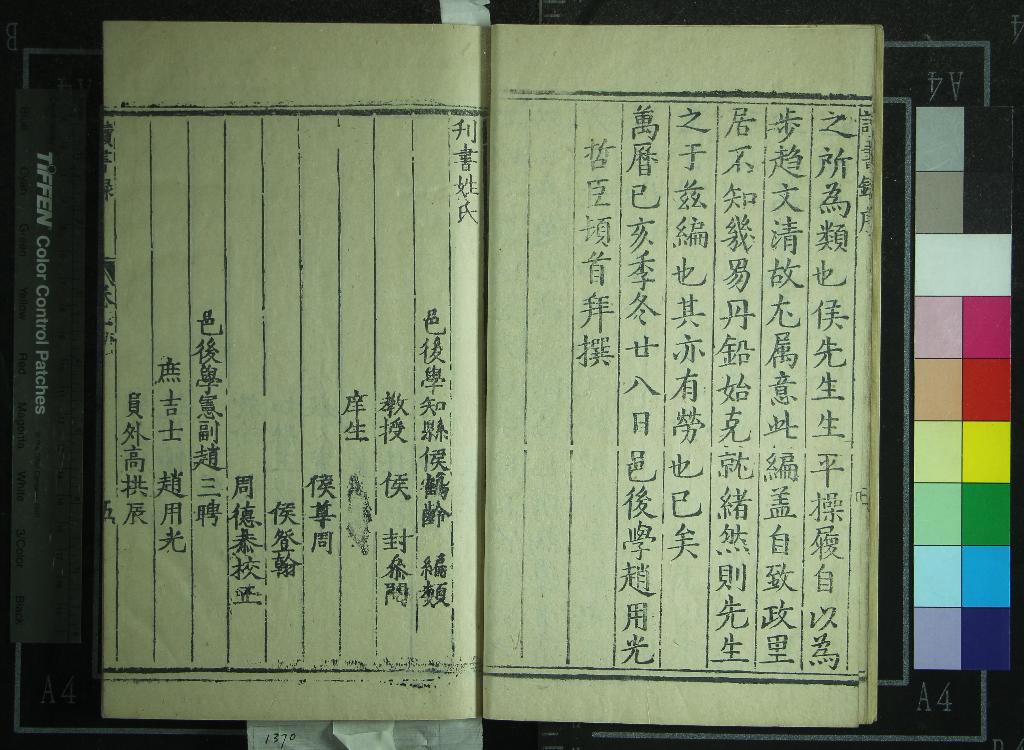 之所為類也侯先生生平操履自以為
步趋文清故尤属意此編盖自致政里
居不知幾易丹鉛始克就緒然則先生
之于兹編也其亦有勞也已矣
萬曆已亥季冬廿八日邑後學趙用光
哲臣頓首拜撰
刊書姓氏
邑後學知縣侯鶴齡 編類
教授 侯 封叅閱
庠生
侯尊周
侯登翰
周德恭校正
邑後學憲副趙三聘
庶吉士 趙用光
員外高拱辰
五
TIFFEN Color Control Patches
Yellow Red Magenta White 3/Color Black
A4
A4
A4
1370